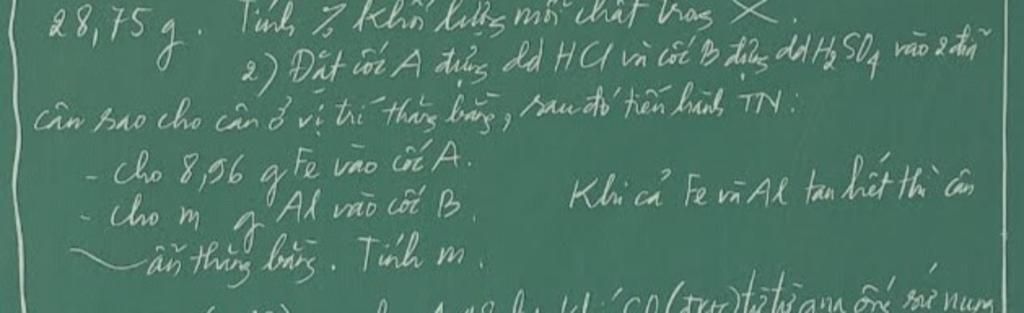 28,75 g. Tính % khối lượng mỗi chất trong X.
2) Đặt cốc A đựng dd HCl và cốc B đựng dd H₂SO₄ vào 2 đĩa
cân sao cho cân ở vị trí thăng bằng, sau đó tiến hành TN:
- Cho 8,96 g Fe vào cốc A.
- Cho m g Al vào cốc B. Khi cả Fe và Al tan hết thì cân
vẫn thăng bằng. Tính m.
CO (đktc) từ từ qua ống sứ nung